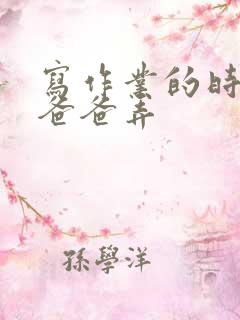 寫作業的時
爸爸弄
孫學洋